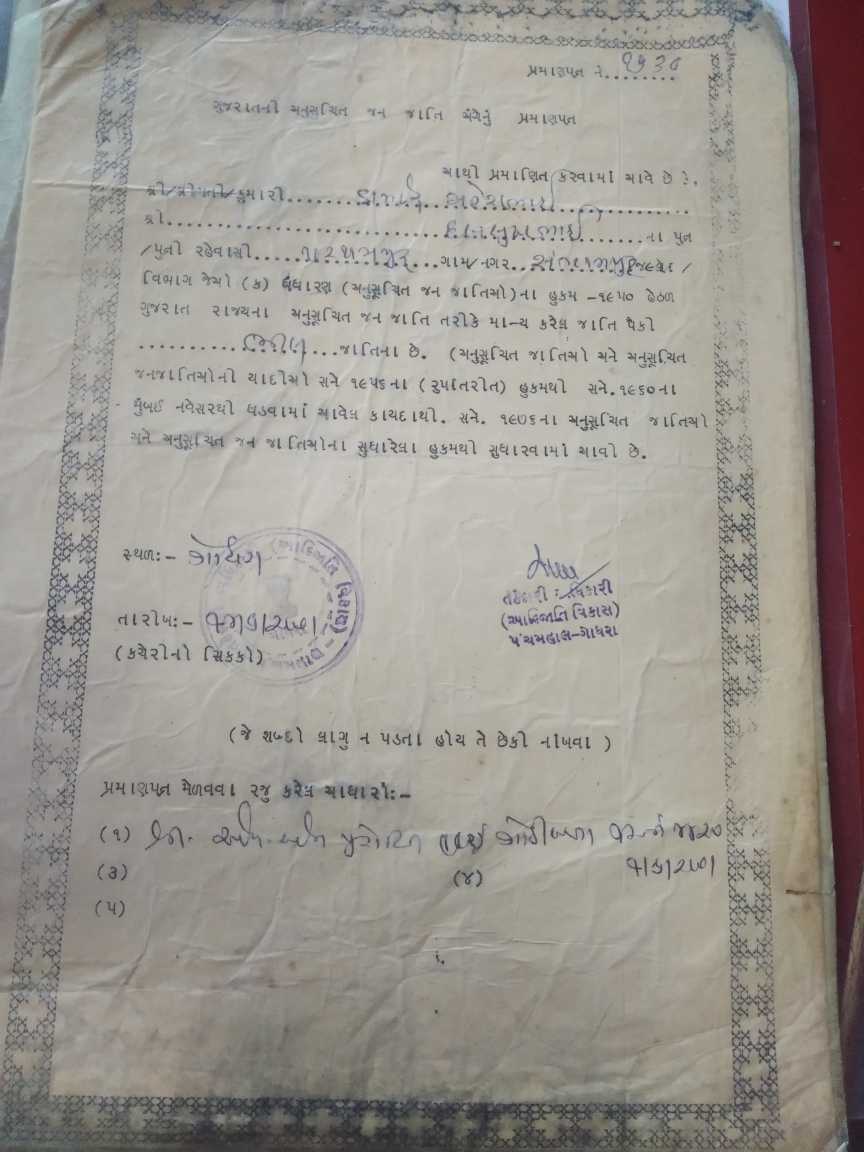 પ્રમાણપત્ર નં.........
ગુજરાતની અનુસૂચિત જન જાતિ અંગેનું પ્રમાણપત્ર
આથી પ્રમાણિત કરવામાં આવે છે કે,
શ્રી/શ્રીમતી/કુમારી........ડામોર...સુરેશભાઈ..............
શ્રી.............................ના પુત્ર
/પુત્રી રહેવાસી...............ગામ/નગર..સંતરામપુર જિલ્લો /
વિભાગ જેઓ (ક) બંધારણ (અનુસૂચિત જન જાતિઓ)ના હુકમ -૧૯૫૦ હેઠળ
ગુજરાત રાજ્યના અનુસૂચિત જન જાતિ તરીકે માન્ય કરેલ જાતિ પૈકી
..........ભીલ....જાતિના છે. (અનુસૂચિત જાતિઓ અને અનુસૂચિત
જનજાતિઓની યાદીઓ સને ૧૯૫૬ના (રુપાંતરીત) હુકમથી સને.૧૯૬૦ના
મુંબઈ નવેસરથી ઘડવામાં આવેલ કાયદાથી. સને. ૧૯૭૬ના અનુસૂચિત જાતિઓ
અને અનુસૂચિત જન જાતિઓના સુધારેલા હુકમથી સુધારવામાં આવી છે.
સ્થળ:- ગોધરા
તારીખ:-
(કચેરીનો સિક્કો)
(આદિજાતિ વિકાસ)
પંચમહાલ-ગોધરા
(જે શબ્દો લાગુ ન પડતા હોય તે છેકી નાંખવા )
પ્રમાણપત્ર મેળવવા રજુ કરેલ આધારો:-
(૧)
(૩)
(૪)
(૫)